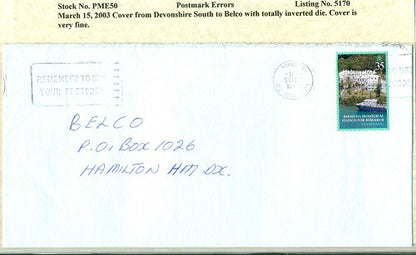 Stock No. PME50 Postmark Errors Listing No. 5170
March 15, 2003 Cover from Devonshire South to Belco with totally inverted die. Cover is
very fine.
REMEMBER TO U
YOUR POSTCOD
35
BERMUDA BIOLOGICAL
STATION FOR RESEARCH
BELCO
P.O BOX 1026
HAMILTON HM DX.